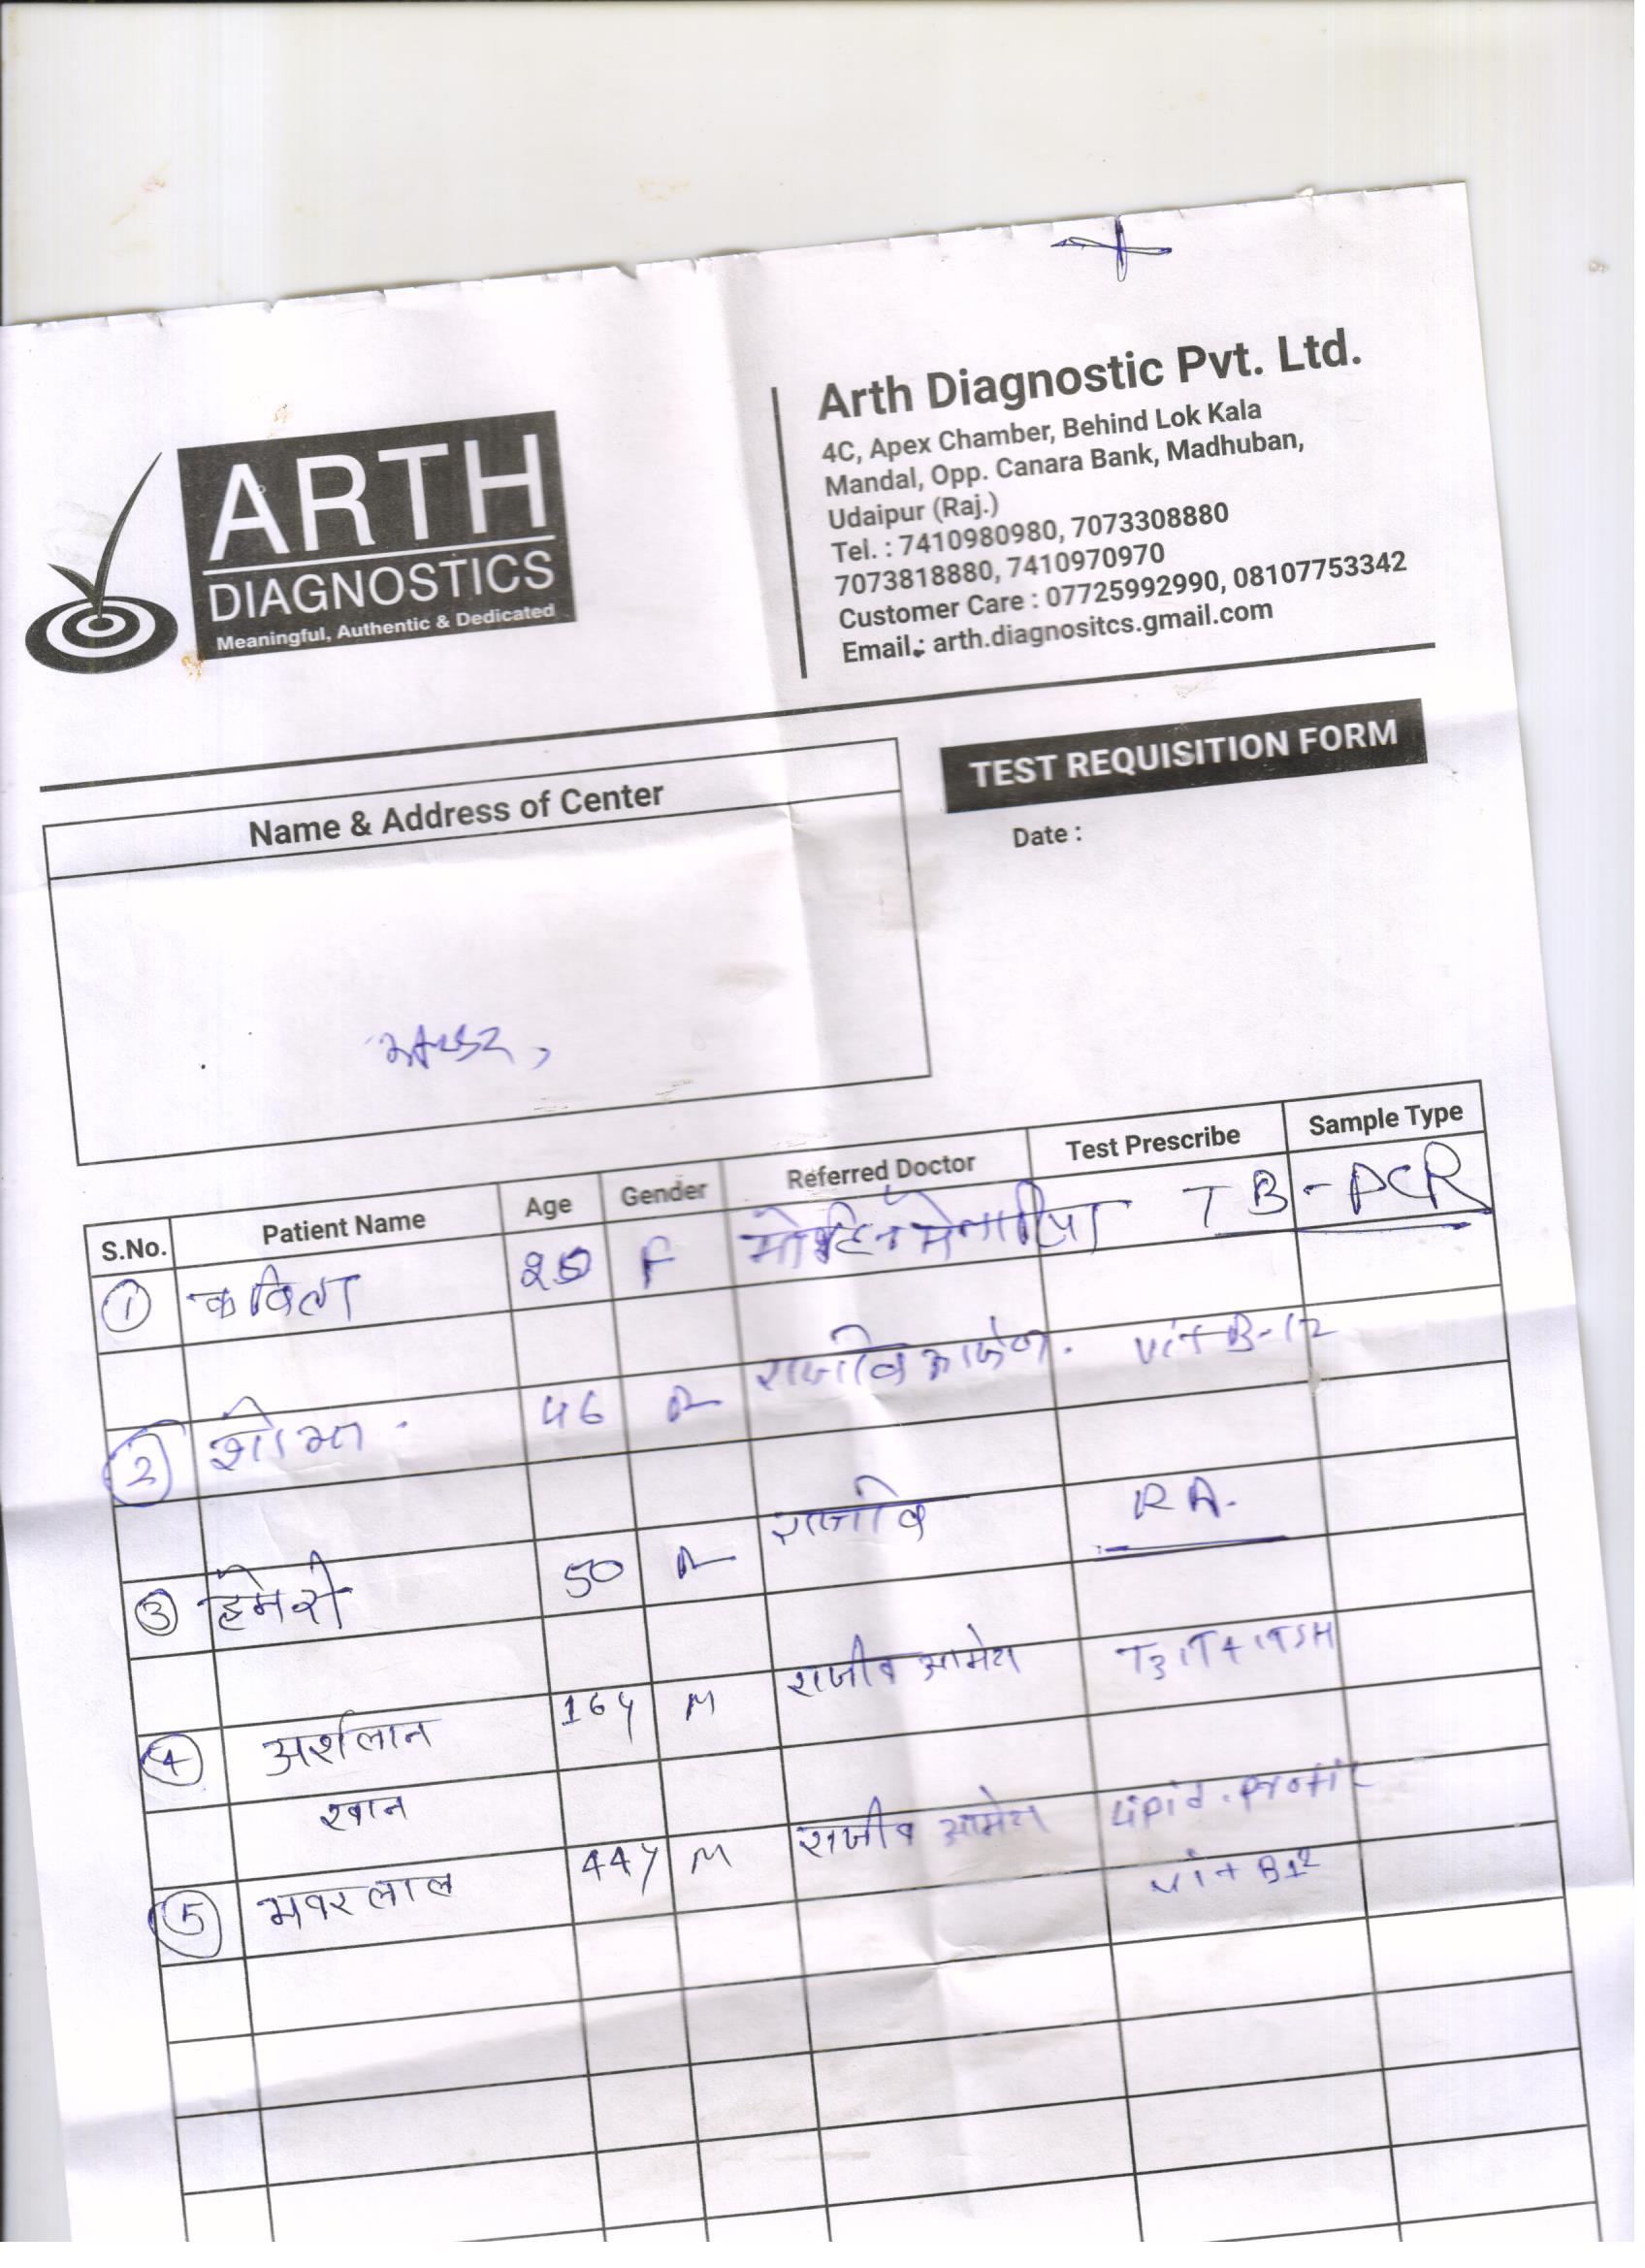 ARTH
DIAGNOSTICS
Meaningful, Authentic & Dedicated
Arth Diagnostic Pvt. Ltd.
4C, Apex Chamber, Behind Lok Kala
Mandal, Opp. Canara Bank, Madhuban,
Udaipur (Raj.)
Tel. : 7410980980, 7073308880
7073818880, 7410970970
Customer Care : 07725992990, 08107753342
Email.: arth.diagnositcs.gmail.com
Name & Address of Center
TEST REQUISITION FORM
Date :
S.No. Patient Name Age Gender Referred Doctor Test Prescribe Sample Type
1 कविता F TB-PCR
2 शोभा 46 राजीव vit B-12
3 हमेरी 50 राजीव RA.
4 अर्शलान 16y M राजीव आमेटा T3, T4, TSH
खान
5 भवरलाल 44y M राजीव आमेटा Lipid. Profil
vit B12